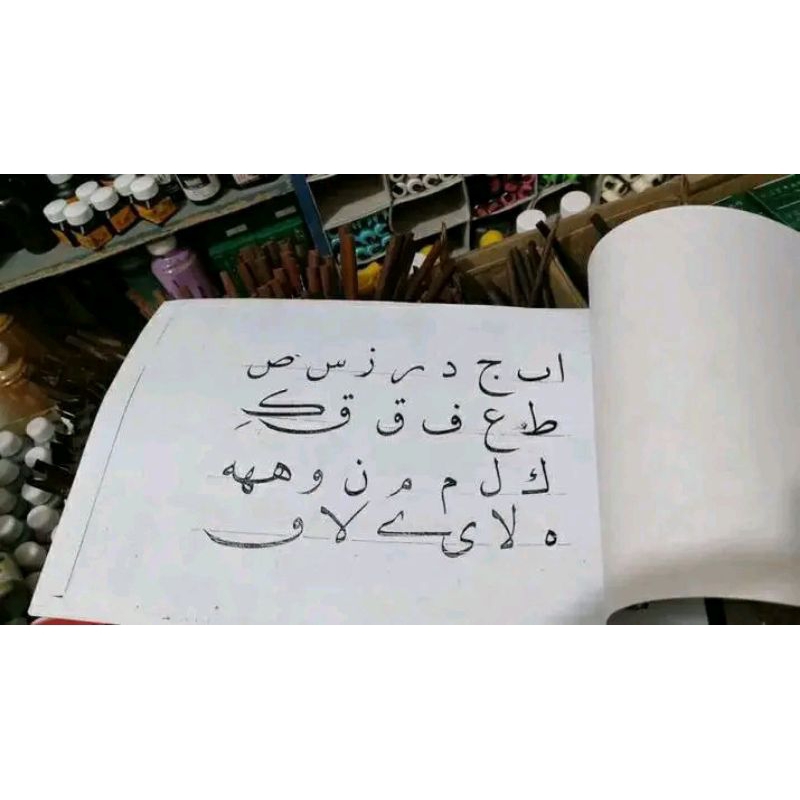 ا ب ج د ر ز س ص
ط ع ف ق ق ک
ك ل م م ن و ه هه
ه لا ي ے لا ف